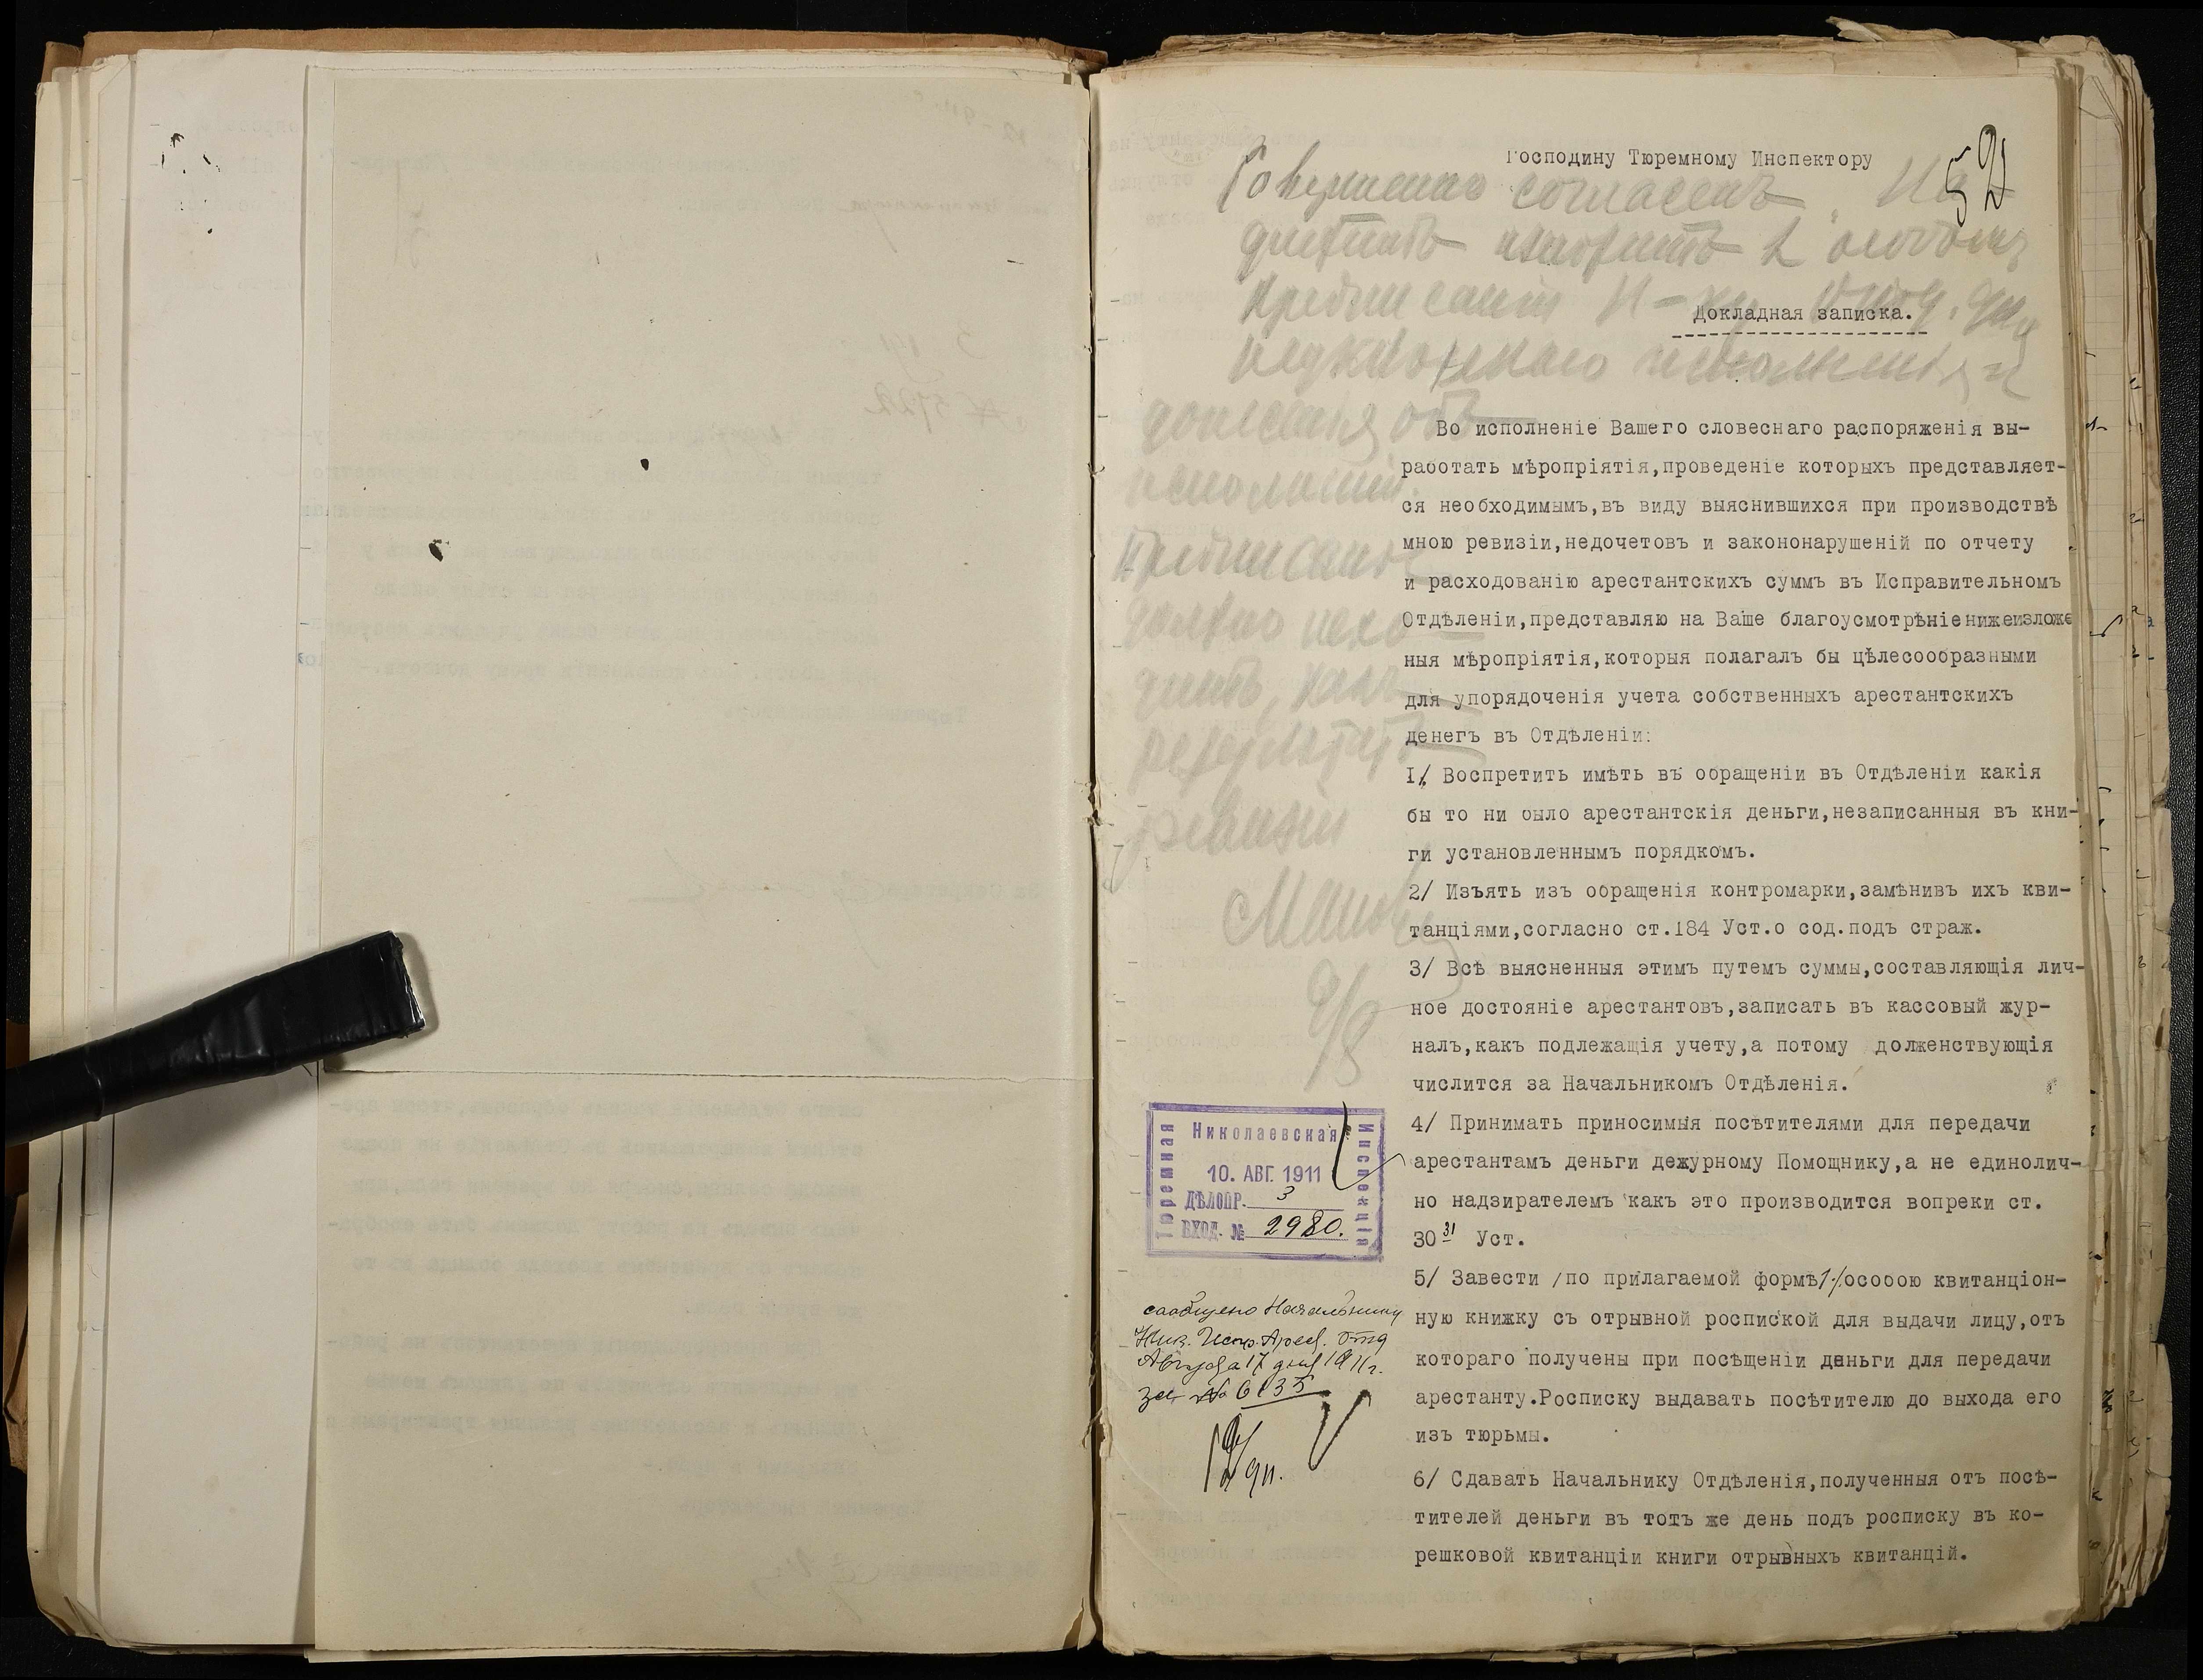 52
Господину Тюремному Инспектору
Совершенно согласенъ. На
изложить въ особомъ
Докладная записка.
исполненія и
донесенія объ
исполненіи.
Предписаніе
должно исхо-
дить, какъ
результатъ
ревизіи
9/8
Во исполненіе Вашего словеснаго распоряженія вы-
работать мѣропріятія,проведеніе которыхъ представляет-
ся необходимымъ,въ виду выяснившихся при производствѣ
мною ревизіи,недочетовъ и закононарушеній по отчету
и расходованію арестантскихъ суммъ въ Исправительномъ
Отдѣленіи,представляю на Ваше благоусмотрѣніе нижеизложе
ныя мѣропріятія,которыя полагалъ бы цѣлесообразными
для упорядоченія учета собственныхъ арестантскихъ
денегъ въ Отдѣленіи:
I/ Воспретить имѣть въ обращеніи въ Отдѣленіи какія
бы то ни было арестантскія деньги,незаписанныя въ кни-
ги установленнымъ порядкомъ.
2/ Изъять изъ обращенія контромарки,замѣнивъ ихъ кви-
танціями,согласно ст.184 Уст.о сод.подъ страж.
3/ Всѣ выясненныя этимъ путемъ суммы,составляющія лич-
ное достояніе арестантовъ,записать въ кассовый жур-
налъ,какъ подлежащія учету,а потому долженствующія
числится за Начальникомъ Отдѣленія.
4/ Принимать приносимыя посѣтителями для передачи
арестантамъ деньги дежурному Помощнику,а не единолич-
но надзирателемъ какъ это производится вопреки ст.
30 31 Уст.
5/ Завести /по прилагаемой формѣ 1./особою квитанціон-
ную книжку съ отрывной роспиской для выдачи лицу,отъ
котораго получены при посѣщеніи деньги для передачи
арестанту.Росписку выдавать посѣтителю до выхода его
изъ тюрьмы.
6/ Сдавать Начальнику Отдѣленія,полученныя отъ посѣ-
тителей деньги въ тотъ же день подъ росписку въ ко-
решковой квитанціи книги отрывныхъ квитанцій.
Николаевская
Тюремная
Инспекція
10. АВГ. 1911
ДѢЛОПР. 3
ВХОД. № 2980.
сообщено Начальнику
Ник. Испр. Арест. Отд
Августа 17 дня 1911г.
за № 6135